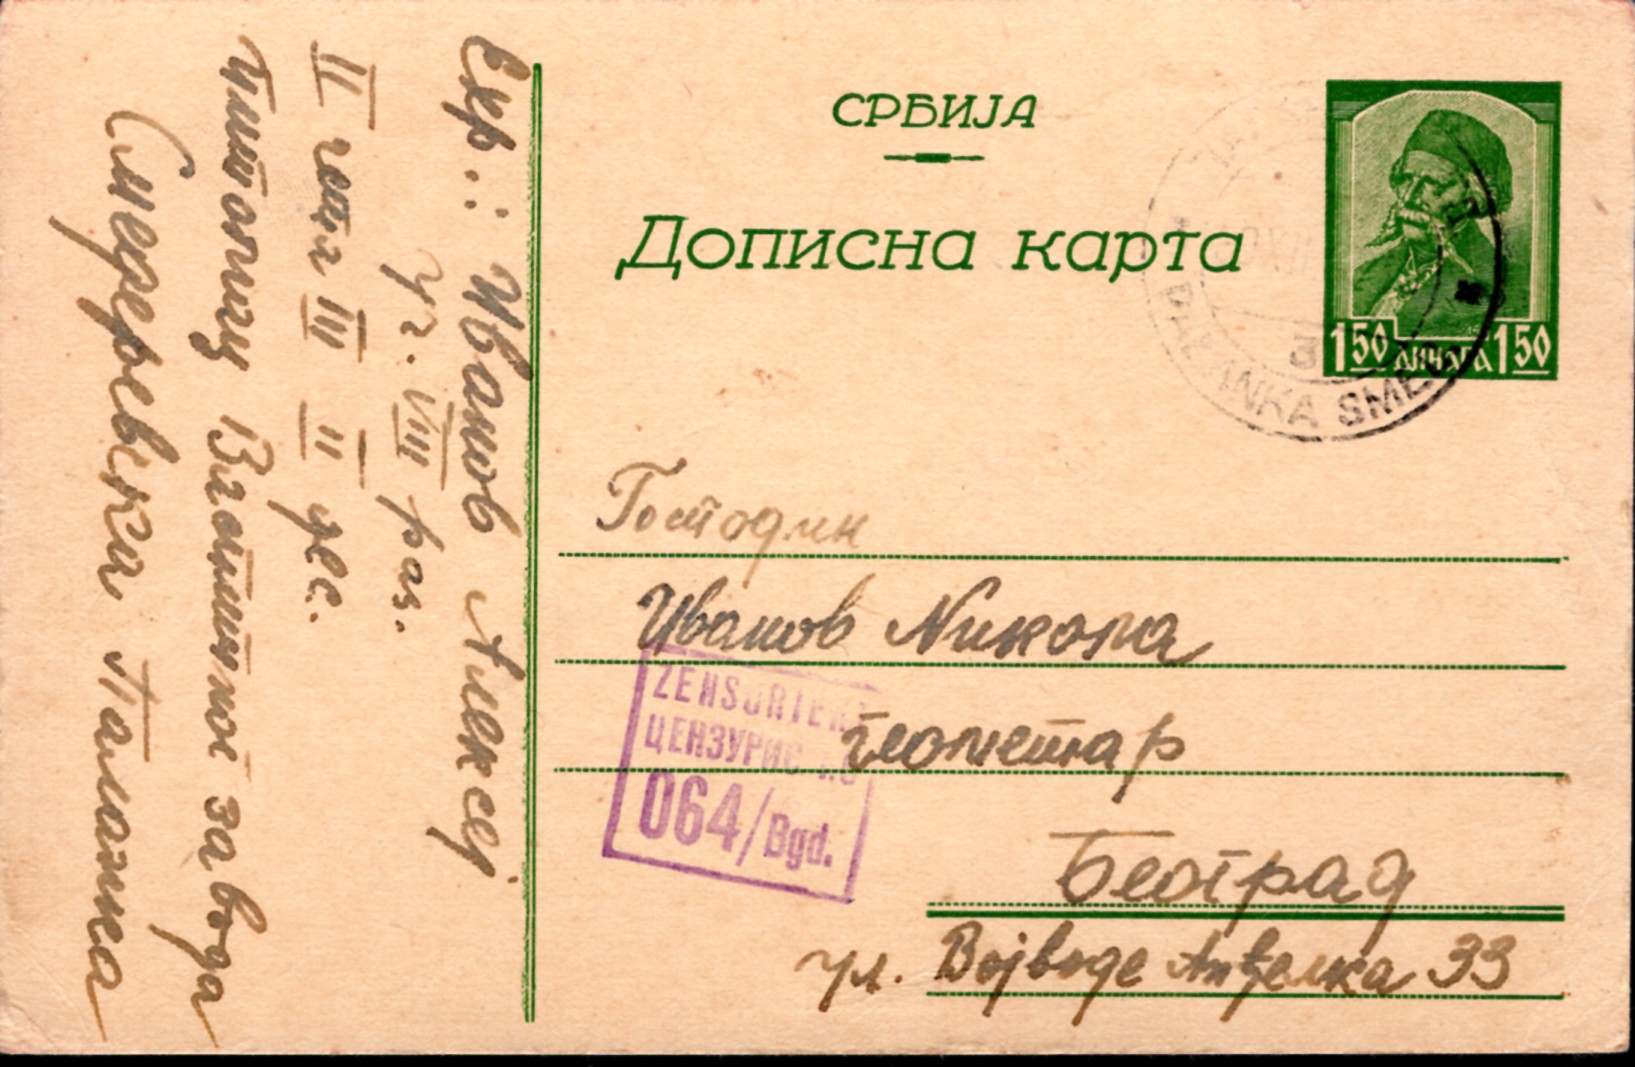 СРБИЈА
Дописна карта
1 50 ДИНАРА 1 50
PALANKA SMED
3
Господин
Иванов Никола
геометар
Београд
ул. Војводе Анђелка 33
ZENSURIERT
ЦЕНЗУРИС
064/Bgd.
Иванов Алексеј
уч. VIII раз.
II чета III II дес.
питомац Васпитног завода
Смедеревска Паланка